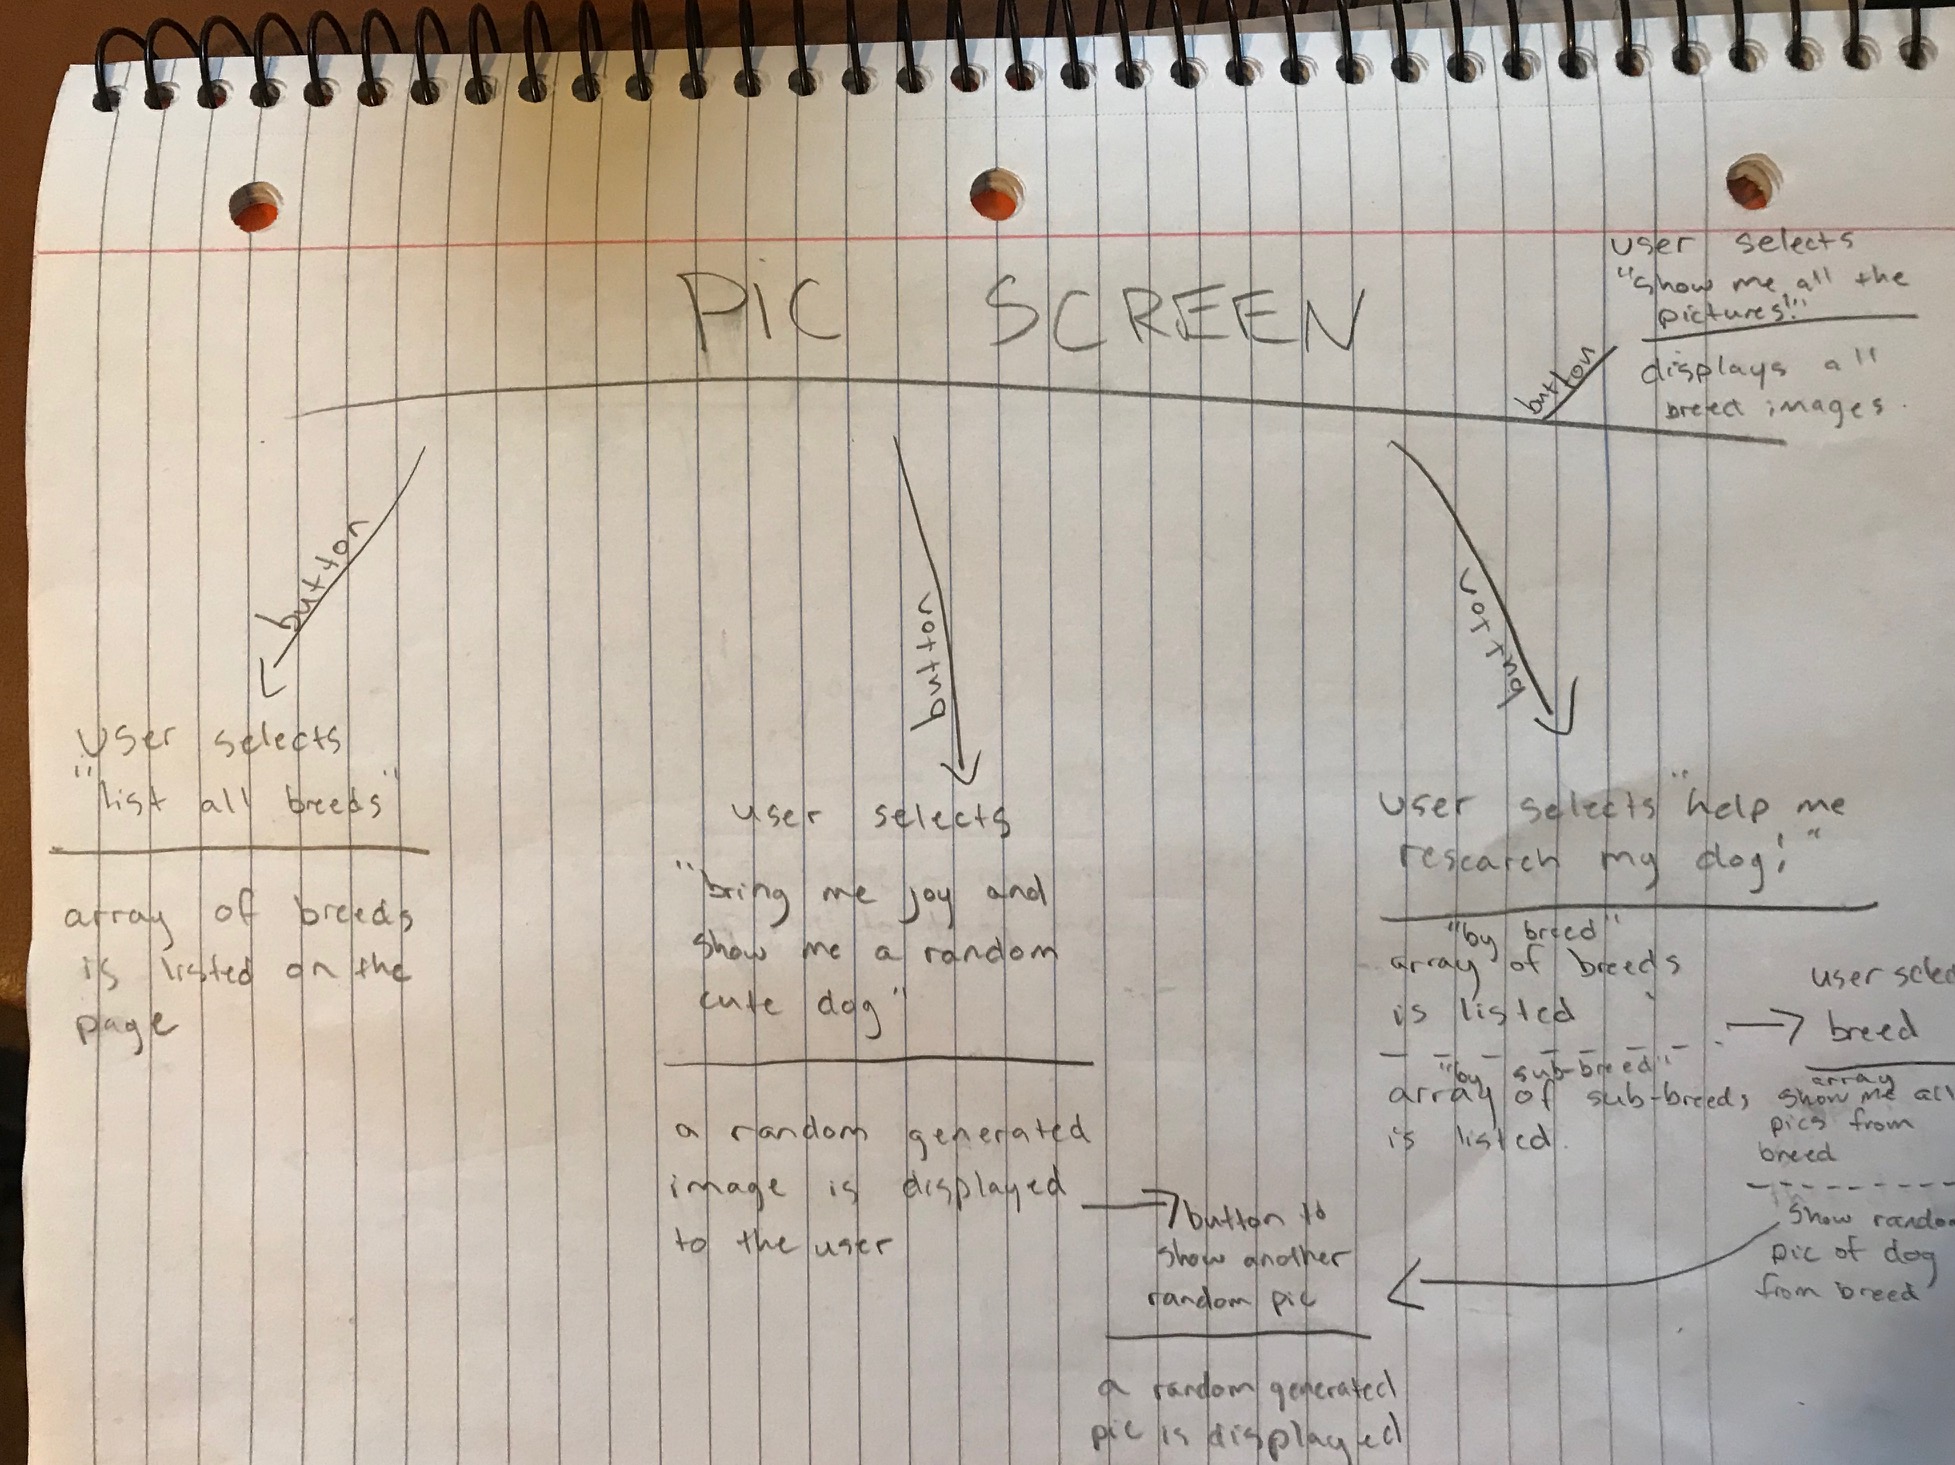 PIC SCREEN
user selects
"show me all the
pictures!"
button
displays all
breed images.
button
user selects
"list all breeds"
array of breeds
is listed on the
page
button
user selects
"bring me joy and
show me a random
cute dog"
a random generated
image is displayed
to the user
button to
show another
random pic
a random generated
pic is displayed
button
user selects "help me
research my dog!"
"by breed"
array of breeds
is listed
"by sub-breed"
array of sub-breeds
is listed.
user selec
breed
array
show me all
pics from
breed
show rando
pic of dog
from breed